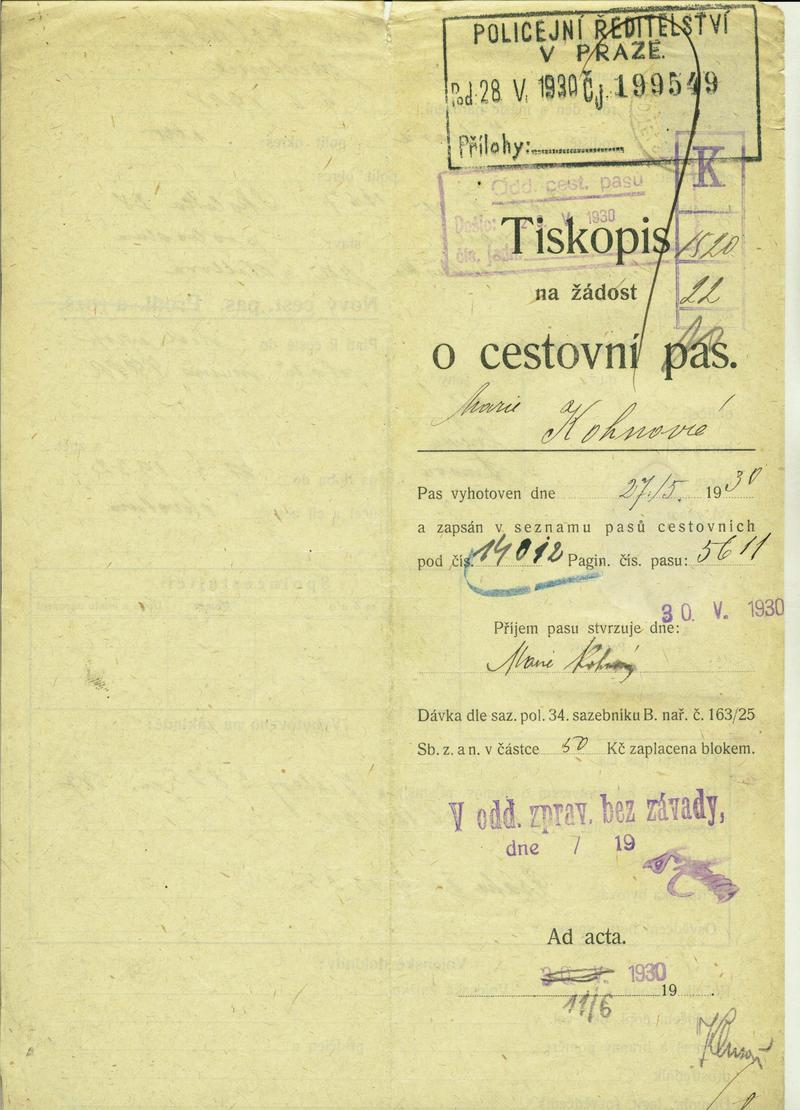 POLICEJNÍ ŘEDITELSTVÍ
V PRAZE.
Pod: 28 V. 1930 Čj. 199549
Přílohy:
K
Odd. cest. pasu
Došlo: V 1930
čís. jedn.
Tiskopis
1520
na žádost
22
o cestovní pas.
Marie Kohnová
Pas vyhotoven dne 27/5. 1930
a zapsán v seznamu pasů cestovních
pod čís. 14012 Pagin. čís. pasu: 5611
30. V. 1930
Příjem pasu stvrzuje dne:
Marie Kohnová
Dávka dle saz. pol. 34. sazebníku B. nař. č. 163/25
Sb. z. a n. v částce 50 Kč zaplacena blokem.
V odd. zprav. bez závady,
dne / 19
Ad acta.
30. V. 1930
19
11/6